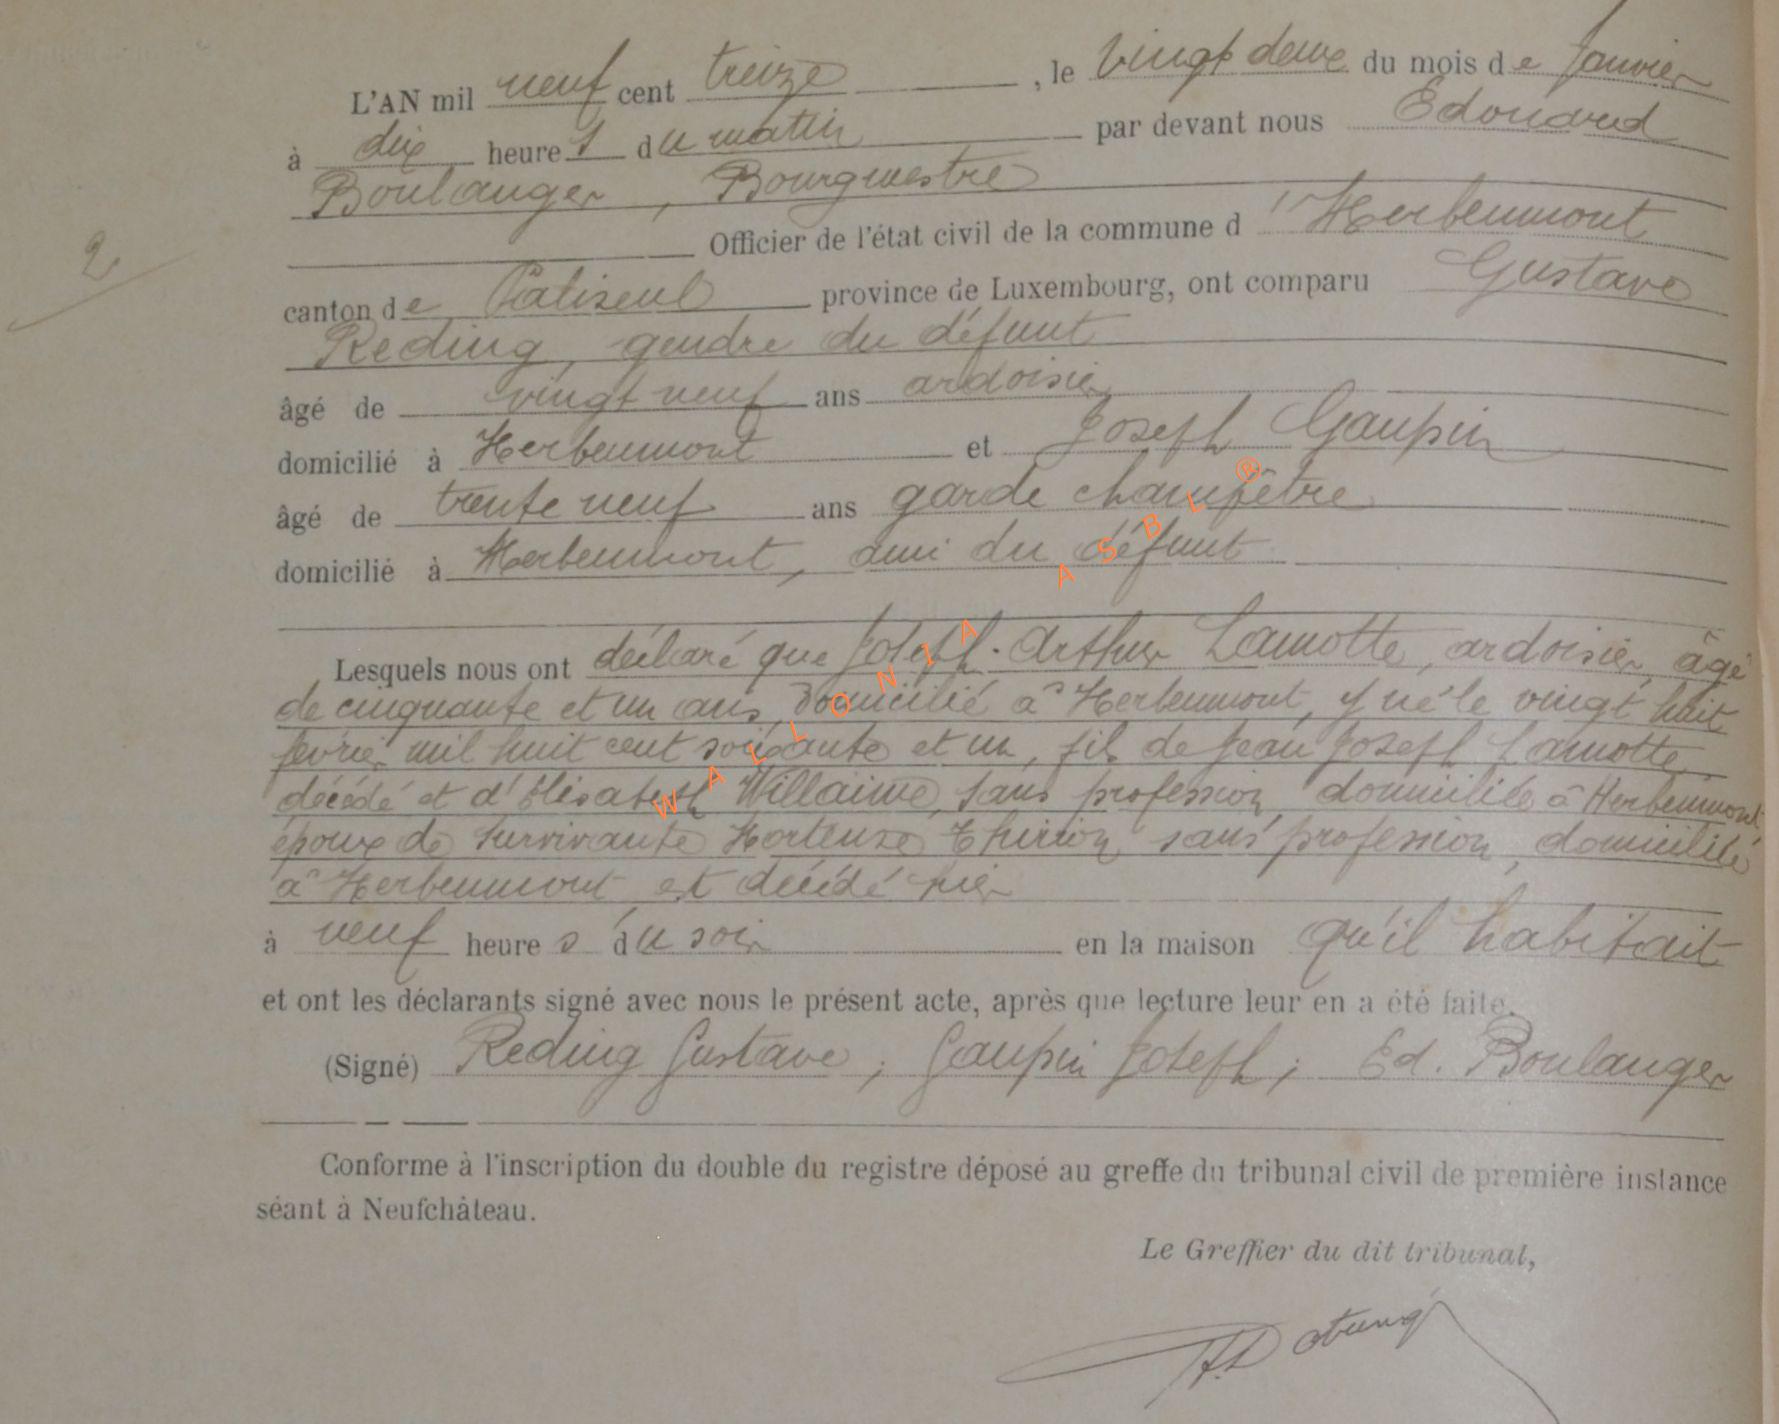 L'AN mil neuf cent treize, le vingt deux du mois de Janvier
à dix heures du matin par devant nous Edouard
Boulanger, Bourgmestre
2
Officier de l'état civil de la commune d'Herbeumont
canton de Paliseul province de Luxembourg, ont comparu Gustave
Reding, gendre du défunt
âgé de vingt neuf ans ardoisier
domicilié à Herbeumont et Joseph Gaupin
âgé de trente neuf ans garde champêtre
domicilié à Herbeumont, ami du défunt
Lesquels nous ont déclaré que Joseph-Arthur Lamotte, ardoisier, âgé
de cinquante et un ans, domicilié à Herbeumont, y né le vingt huit
février mil huit cent soixante et un, fils de Jean Joseph Lamotte
décédé et d'Elisabeth Willaime, sans profession, domiciliée à Herbeumont,
époux de survivante Hortense Thirion sans profession, domiciliée
à Herbeumont est décédé hier
à neuf heures du soir en la maison qu'il habitait
et ont les déclarants signé avec nous le présent acte, après que lecture leur en a été faite.
(Signé) Reding Gustave ; Gaupin Joseph ; Ed. Boulanger
Conforme à l'inscription du double du registre déposé au greffe du tribunal civil de première instance
séant à Neufchâteau.
Le Greffier du dit tribunal,
WALLONIA ASBL ®